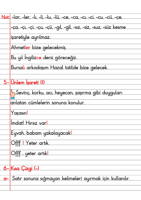 Not: -lar, -ler, -lı, -li, -lu, -lü, -ce, -ca, -cı, -ci, -cu, -cü, -çe,
-ça, -çı, -çi, -çu, -çü, -gil, -gil, -sız, -siz, -suz, -süz kesme
işaretiyle ayrılmaz.
Ahmetler bize gelecekmiş.
Bu yıl İngilizce dersi göreceğiz.
Bursalı arkadaşım Hazal tatilde bize gelecek.
5- Ünlem İşareti (!)
Sevinç, korku, acı, heyecan, şaşırma gibi duyguları
anlatan cümlelerin sonuna konulur.
Yaşasın!
İmdat! Hırsız var!
Eyvah, babam yakalayacak!
Offf ! Yeter artık.
Offf , yeter artık!
6- Kısa Çizgi (-)
Satır sonuna sığmayan kelimeleri ayırmak için kullanılır.